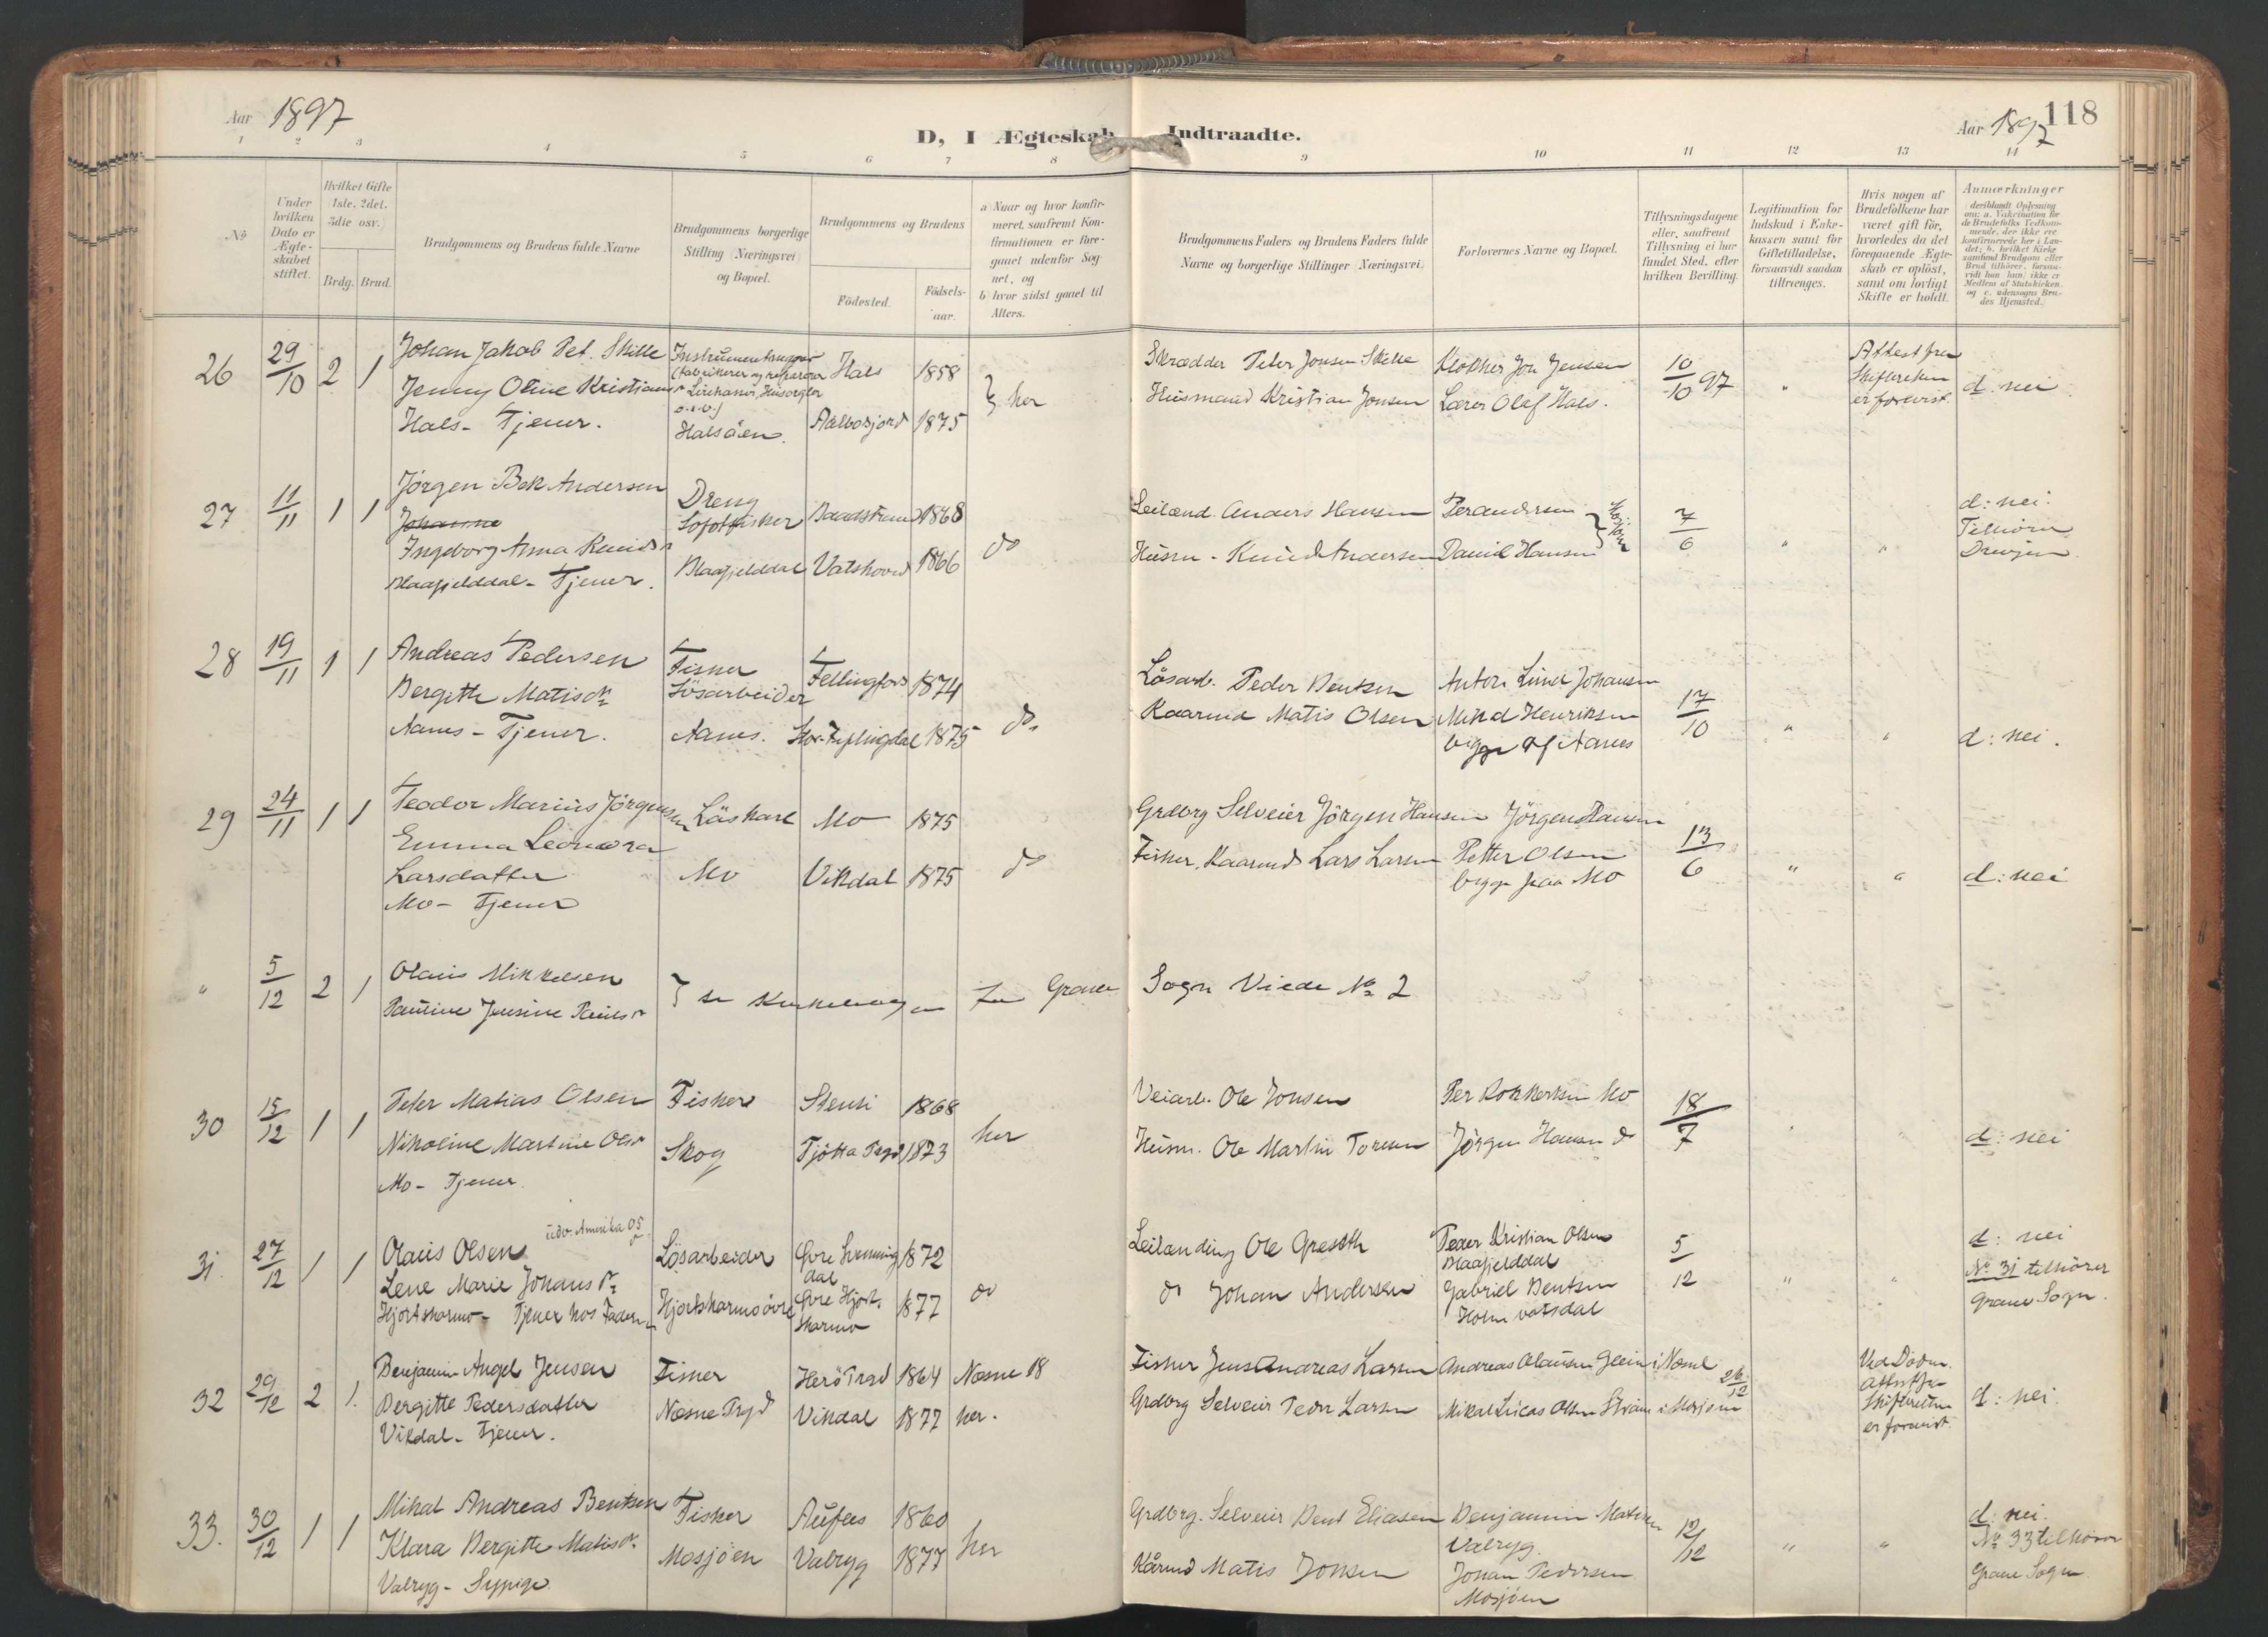 Aar 1897
D, I Ægteskab Indtraadte.
Aar 1897
118
1 2 3 4 5 6 7 8 9 10 11 12 13 14
No
Under hvilken Dato er Ægteskabet stiftet.
Hvilket Gifte (1ste, 2det, 3die osv.)
Brdg. Brud.
Brudgommens og Brudens fulde Navne
Brudgommens borgerlige Stilling (Næringsvei) og Bopæl.
Brudgommens og Brudens
Födested.
Födselsaar.
a) Naar og hvor konfirmeret, saafremt Konfirmationen er foregaaet udenfor Sognet, og
b) hvor sidst gaaet til Alters.
Brudgommens Faders og Brudens Faders fulde Navne og borgerlige Stillinger (Næringsvei)
Forlovernes Navne og Bopæl.
Tillysningsdagene eller, saafremt Tillysning ei har fundet Sted, efter hvilken Bevilling.
Legitimation for Indskud i Enkekassen samt for Giftetilladelse, forsaavidt saadan tiltrænges.
Hvis nogen af Brudefolkene har været gift för, hvorledes da det foregaaende Ægteskab er oplöst, samt om lovligt Skifte er holdt.
Anmærkninger
26 29/10 2 1 Johan Jakob Pet. Skille
Jenny Oline Kristians dr
Hals - Tjener.
Halsöen.
Hals 1858
Aalbosjord 1875
her
Skrædder Peter Jonsen Skille
Husmand Kristian Jonsen
Klokker Jon Jensen
Lærer Olaf Hals.
10/10 97 "
Attest fra Skifteretten er forevist.
d. nei
27 11/11 1 1 Jörgen Bek Andersen
Johanne
Ingeborg Anna Knuds dr
Blaafjelddal - Tjener.
Dreng
Lofotfisker
Blaafjelddal
Baadstrand 1868
Vatshoved 1866
do
Leilænd. Anders Hansen
Husm - Knud Andersen
Per Andersen
Daniel Hansen
7/6 " "
d: nei.
Tilhører
Drevjen
28 19/11 1 1 Andreas Pedersen
Bergitte Matisdr
Aanes - Tjener.
Fisker
Lösarbeider
Aanes.
Fellingfors 1874
Stor-Fiplingdal 1875
do
Lösarb. Peder Bentsen
Kaarmd Matis Olsen
Anton Lind Johansen
Mikal Henriksen
begge af Aanes
17/10 " "
d: nei.
29 24/11 1 1 Teodor Marius Jörgensen
Emma Leonora
Larsdatter
Mo - Tjener
Löskarl
Mo
Mo 1875
Vikdal 1875
do
Grdbrg Selveier Jörgen Hansen
Fisker. Kaarmd Lars Larsen
Jörgen Hansen
Petter Olsen
begge paa Mo
13/6 " "
d: nei
" 5/12 2 1 Olaus Mikkelsen
Pauline Jensine Pauls dr
se Kirkebogen for Grane Sogn Viede No 2
30 15/12 1 1 Peter Matias Olsen
Nikoline Martine Ols dr
Mo - Tjener.
Fisker
Skog
Stensi 1868
Tjötta Prgd 1873
her
Veiarb. Ole Jonsen
Husm. Ole Martin Toresen
Per Korneliusen Mo
Jörgen Hansen do
18/7
d: nei
31. 27/12 1 1 Olaus Olsen udv. Amerika 05
Lene Marie Johans dr
Hjortskarmo - Tjener hos Faderen
Lösarbeider
Hjortskarmo övre
Övre Svenningdal 1872
Övre Hjortskarmo 1877
do
Leilænding Ole Gresseth
do Johan Andersen
Peder Kristian Olsen
Blaafjelddal
Gabriel Bentsen
Holmvatsdal
5/12 " "
d: nei
No 31 tilhörer
Grane Sogn.
32 29/12 2 1. Benjamin Angel Jensen
Bergitte Pedersdatter
Vikdal - Tjener.
Fisker
Næsne Prgd
Herö Prgd 1864
Vikdal 1877
Næsne 18
her.
Fisker Jens Andreas Larsen
Grdbrg Selveier Peder Larsen
Andreas Olausen Glein i Næsne
Mikal Lucas Olsen Straum i Mosjøen
26/12
Ved Döden.
Attest fra
Skifteretten
er forevist.
d: nei.
33. 30/12 1 1 Mikal Andreas Bentsen
Klara Bergitte Matis dr.
Valryg - Sypige.
Fisker
Mosjöen
Aufles 1860
Valryg 1877
her
Grdbrg. Selveier Bent Eliasen
Kårmd Matis Jonsen
Benjamin Matisen
Valryg.
Johan Pedersen
Mosjöen
12/12 " "
d: nei.
No 33 tilhörer
Grane Sogn.